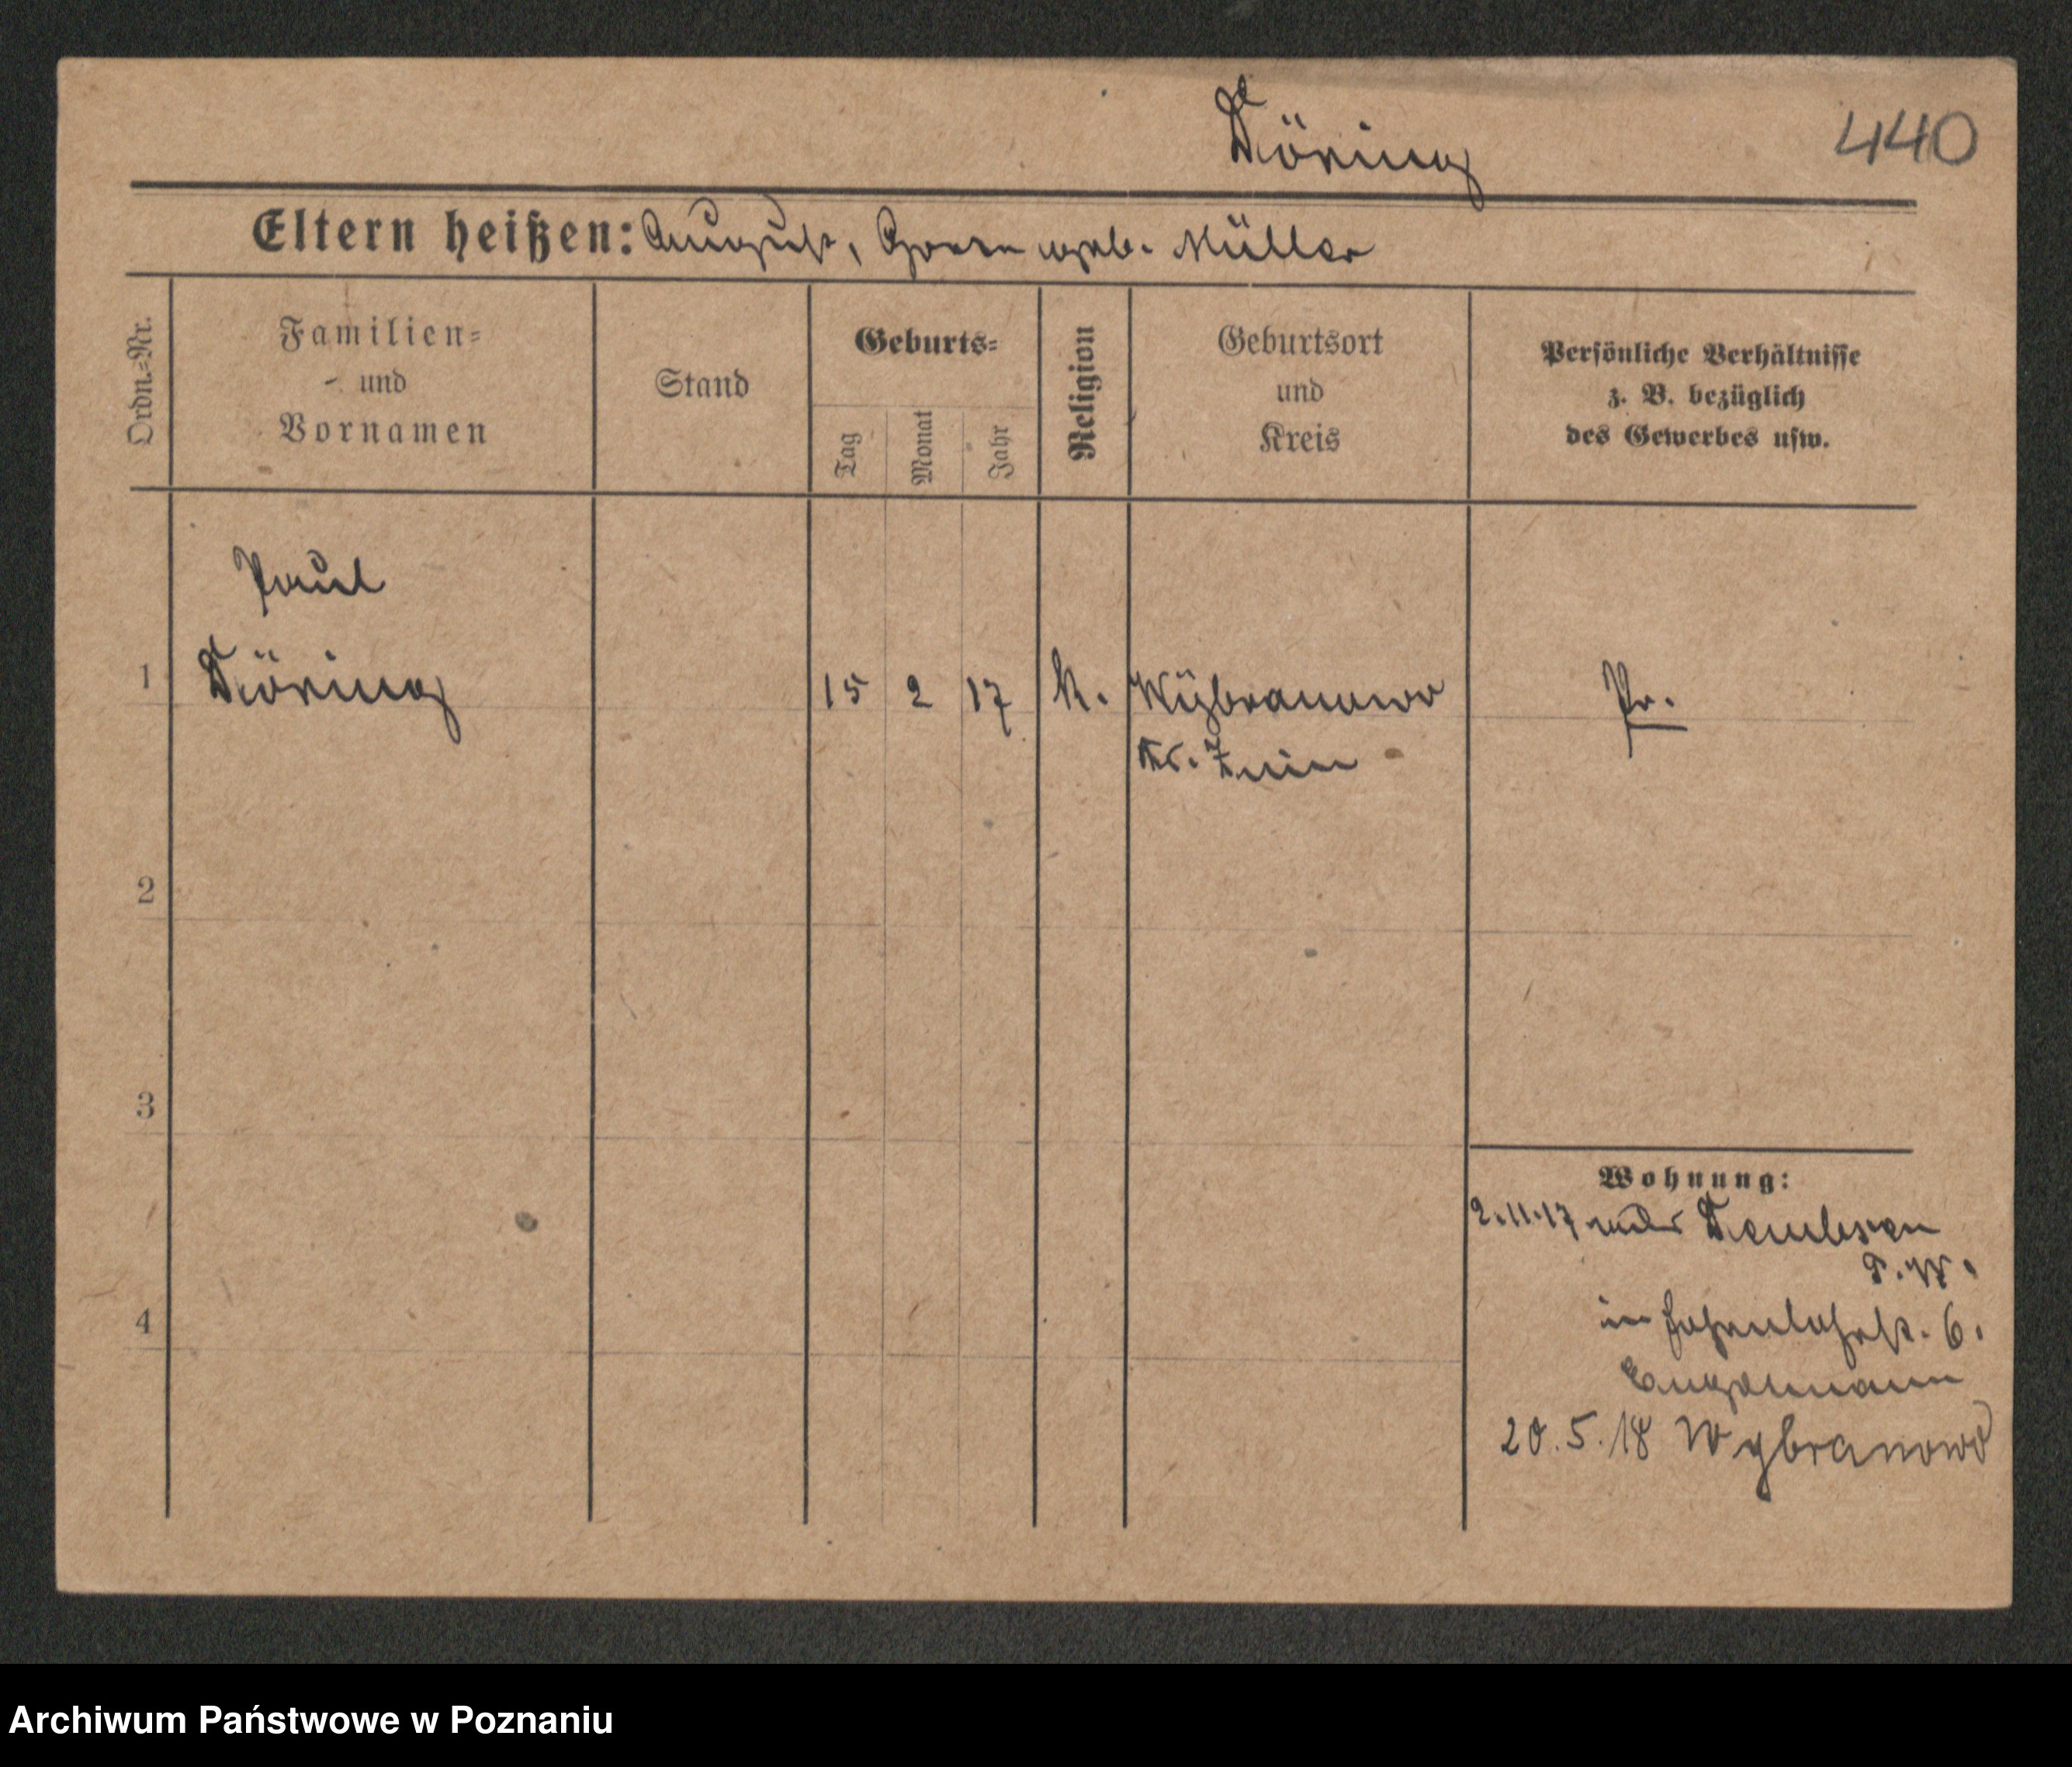 Döring
440
Eltern heißen: August, geb. Müller
Ordn.-Nr.
Familien-
und
Vornamen
Stand
Geburts-
Tag
Monat
Jahr
Religion
Geburtsort
und
Kreis
Persönliche Verhältnisse
z. B. bezüglich
des Gewerbes usw.
Paul
1 Döring 15 2 17 k. Wÿbranowo Pr.
Kr. Znin
2
3
4
Wohnung:
2.11.17 Dembsen
in 6.
Engelmann
20.5.18 Wybranowo
Archiwum Państwowe w Poznaniu